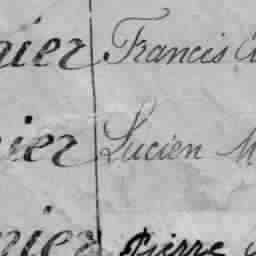 nier Francis
nier Lucien M
nier Pierre